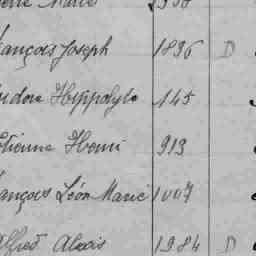 Marie 1938
rançois Joseph 1896 D
idore Hyppolyte 145
tienne Henri 913
rançois Léon Marie 1007
lfred Alexis 1984 D